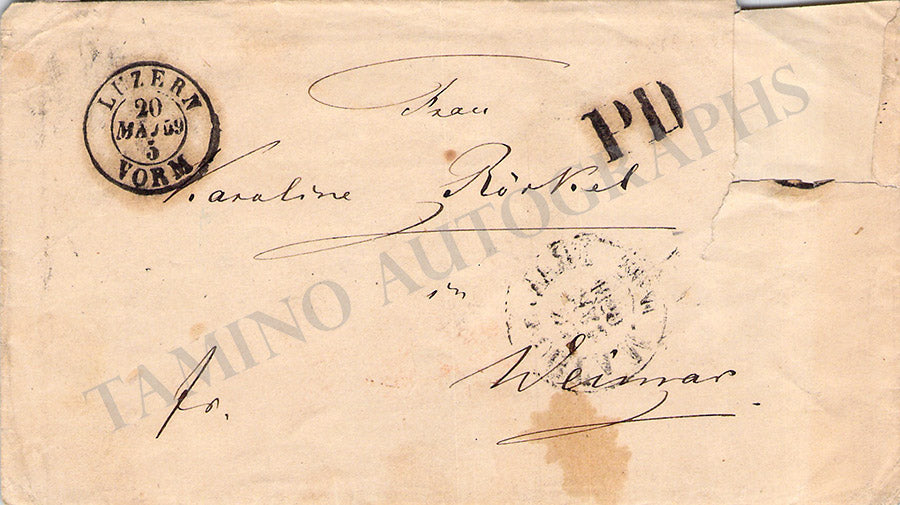 LUZERN
20
MAI 59
5
VORM
PD
Frau
Karoline Röckel
in
Weimar.
fr.
TAMINO AUTOGRAPHS